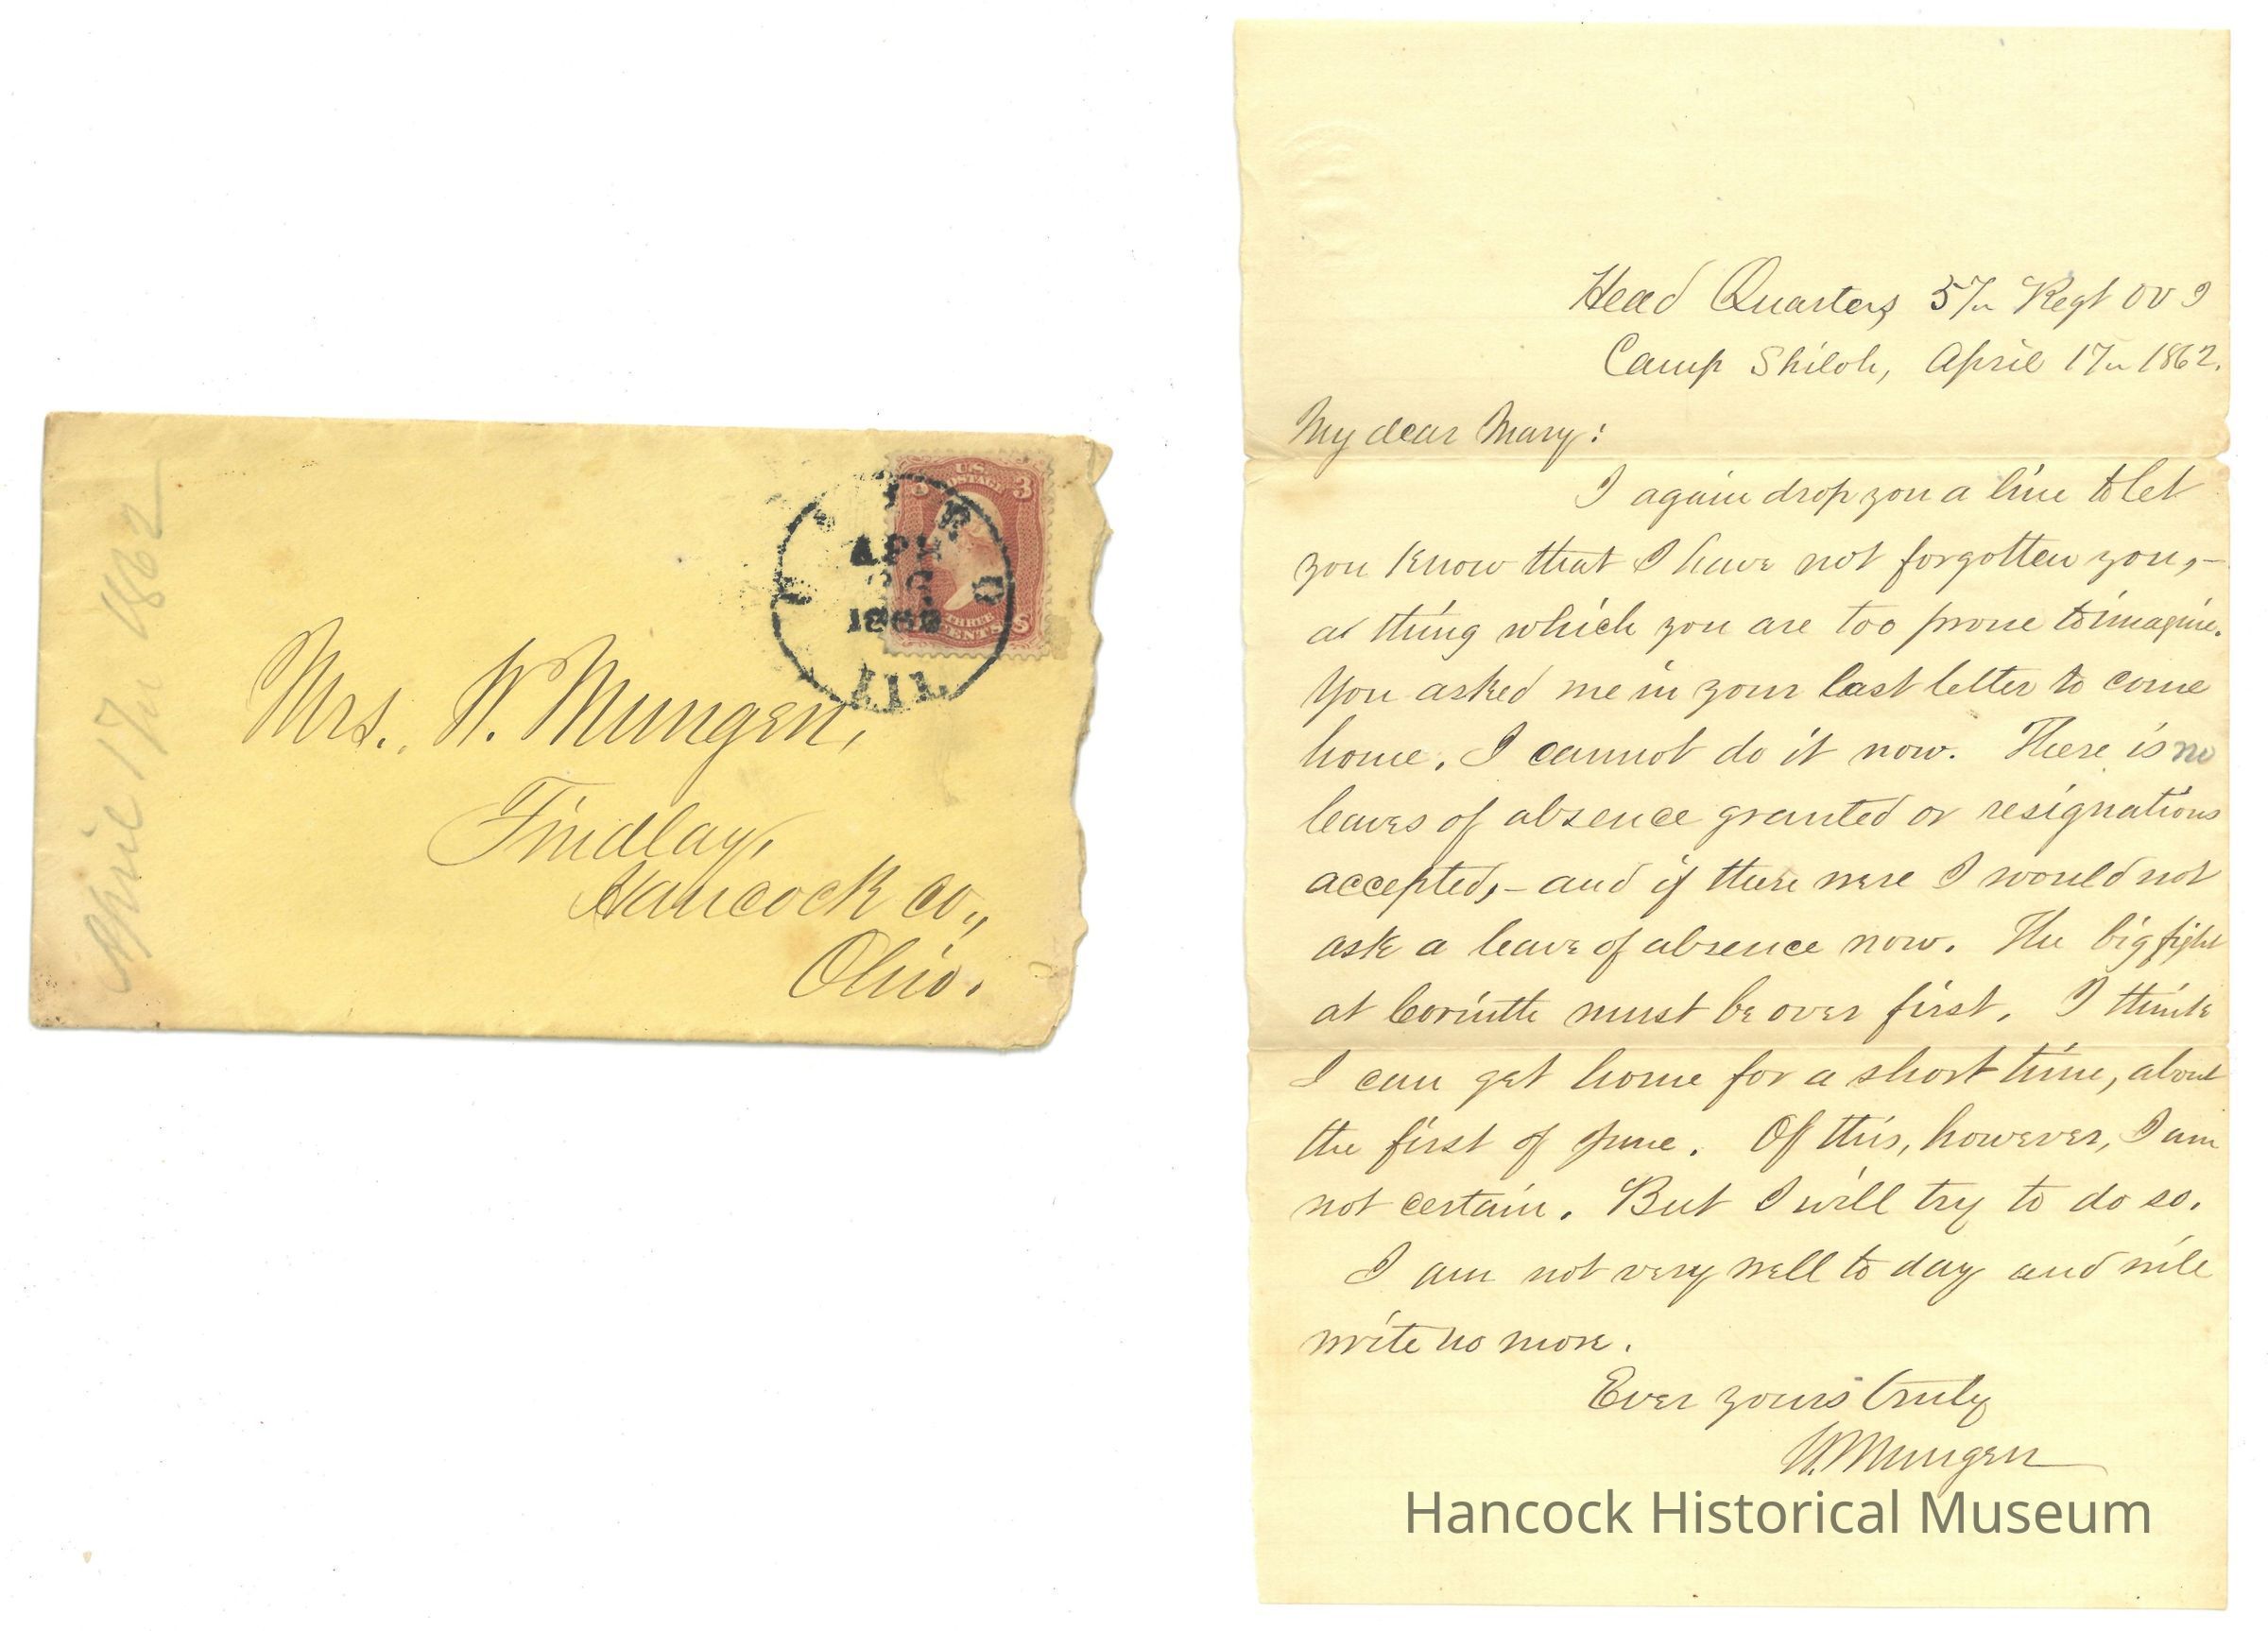 April 17th 1862
U.S. POSTAGE
3 3
THREE CENTS
CAIRO
APR
1862
ILL.
Mrs. W. Mungen,
Findlay,
Hancock co.,
Ohio.
Head Quarters 57th Regt OVI
Camp Shiloh, April 17th 1862.
My dear Mary:
I again drop you a line to let
you know that I have not forgotten you,-
a thing which you are too prone to imagine.
You asked me in your last letter to come
home. I cannot do it now. There is no
leaves of absence granted or resignations
accepted,- and if there were I would not
ask a leave of absence now. The big fight
at Corinth must be over first. I think
I can get home for a short time, about
the first of June. Of this, however, I am
not certain. But I will try to do so.
I am not very well to day and will
write no more.
Ever yours truly
W. Mungen
Hancock Historical Museum